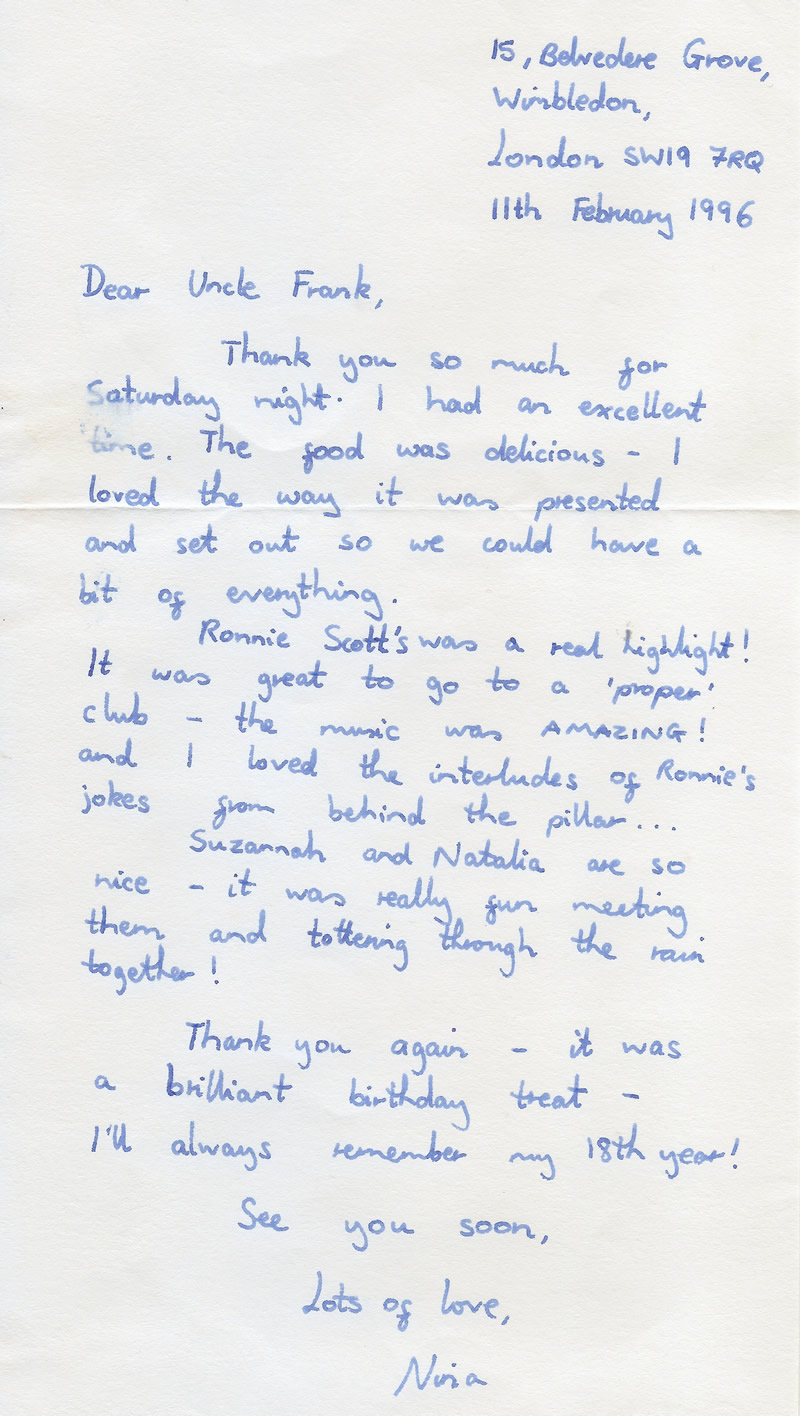 15, Belvedere Grove,
Wimbledon,
London SW19 7RQ
11th February 1996
Dear Uncle Frank,
Thank you so much for
Saturday night. I had an excellent
time. The food was delicious - I
loved the way it was presented
and set out so we could have a
bit of everything.
Ronnie Scott's was a real highlight!
It was great to go to a 'proper'
club - the music was AMAZING!
and I loved the interludes of Ronnie's
jokes from behind the pillar...
Suzannah and Natalia are so
nice - it was really fun meeting
them and tottering through the rain
together!
Thank you again - it was
a brilliant birthday treat -
I'll always remember my 18th year!
See you soon,
Lots of love,
Nina